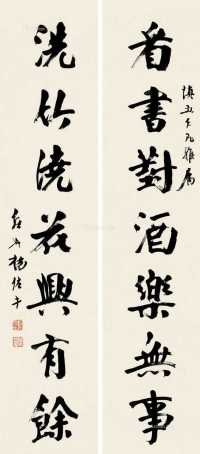 看書對酒樂無事
慎五仁兄雅屬
洗竹澆花興有餘